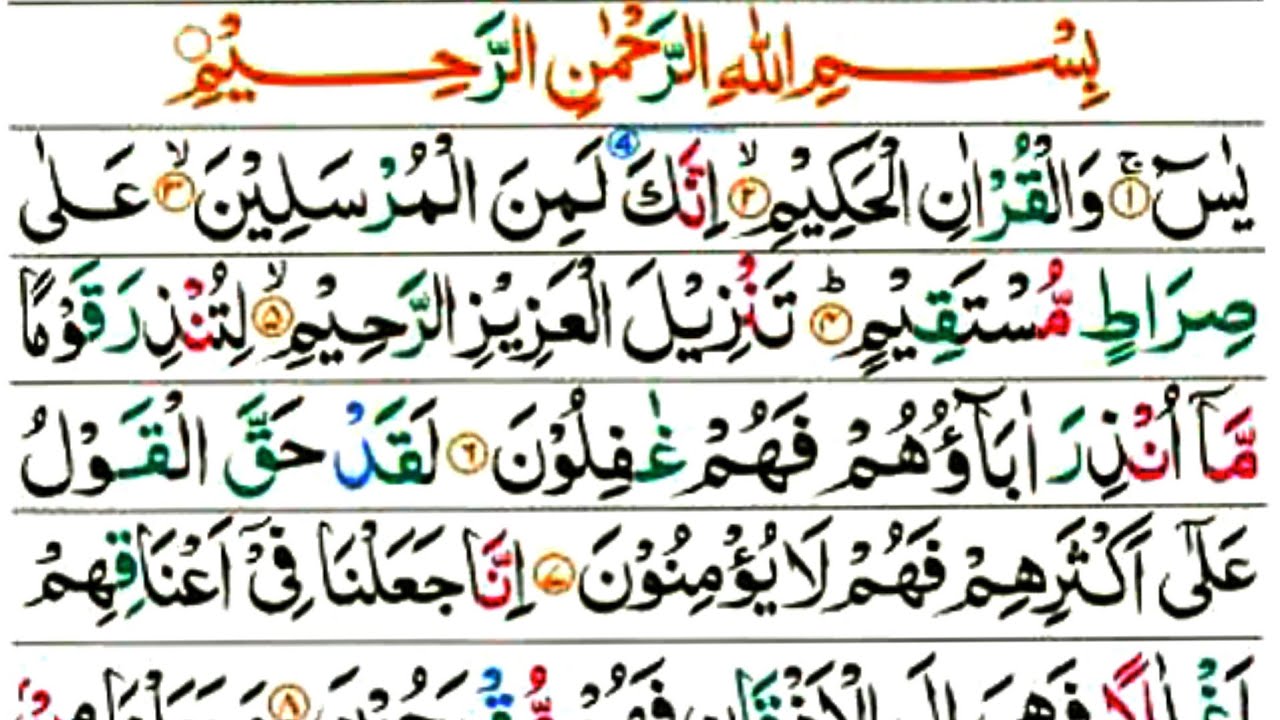 بِسْمِ اللهِ الرَّحْمٰنِ الرَّحِيْمِ
يٰسٓ ۚ﴿۱﴾ وَالْقُرْاٰنِ الْحَكِيْمِ ۙ﴿۲﴾ اِنَّكَ لَمِنَ الْمُرْسَلِيْنَ ۙ﴿۳﴾ عَلٰى
صِرَاطٍ مُّسْتَقِيْمٍ ؕ﴿۴﴾ تَنْزِيْلَ الْعَزِيْزِ الرَّحِيْمِ ۙ﴿۵﴾ لِتُنْذِرَ قَوْمًا
مَّاۤ اُنْذِرَ اٰبَآؤُهُمْ فَهُمْ غٰفِلُوْنَ ﴿۶﴾ لَقَدْ حَقَّ الْقَوْلُ
عَلٰٓى اَكْثَرِهِمْ فَهُمْ لَا يُؤْمِنُوْنَ ﴿۷﴾ اِنَّا جَعَلْنَا فِيْۤ اَعْنَاقِهِمْ